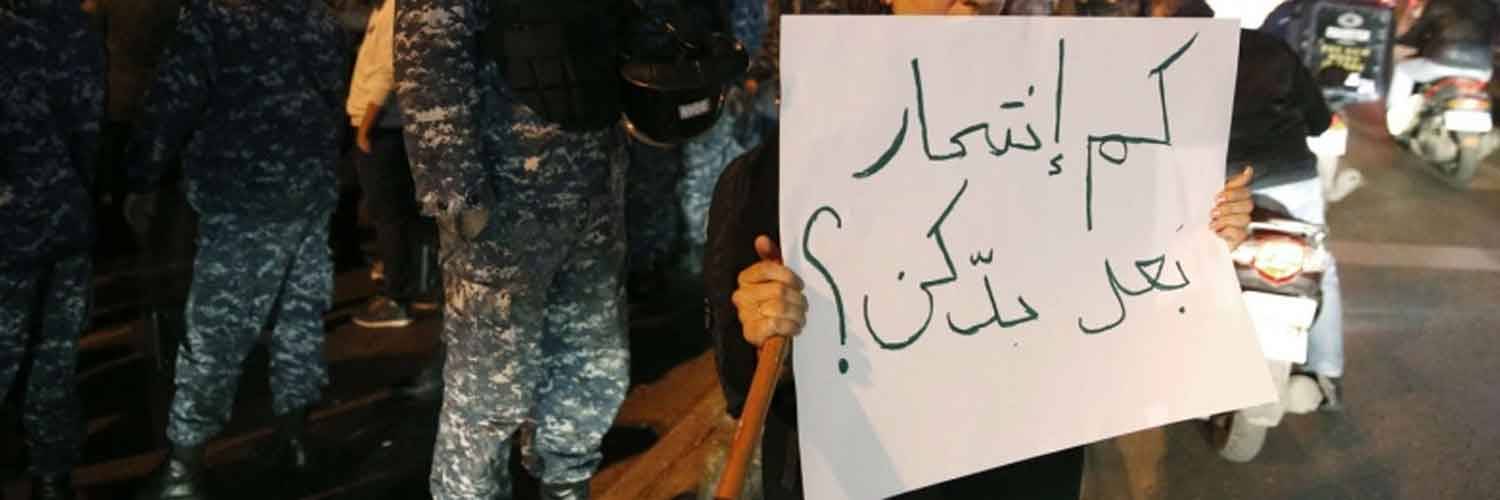 كم إنتحار
بعد بدّكن؟